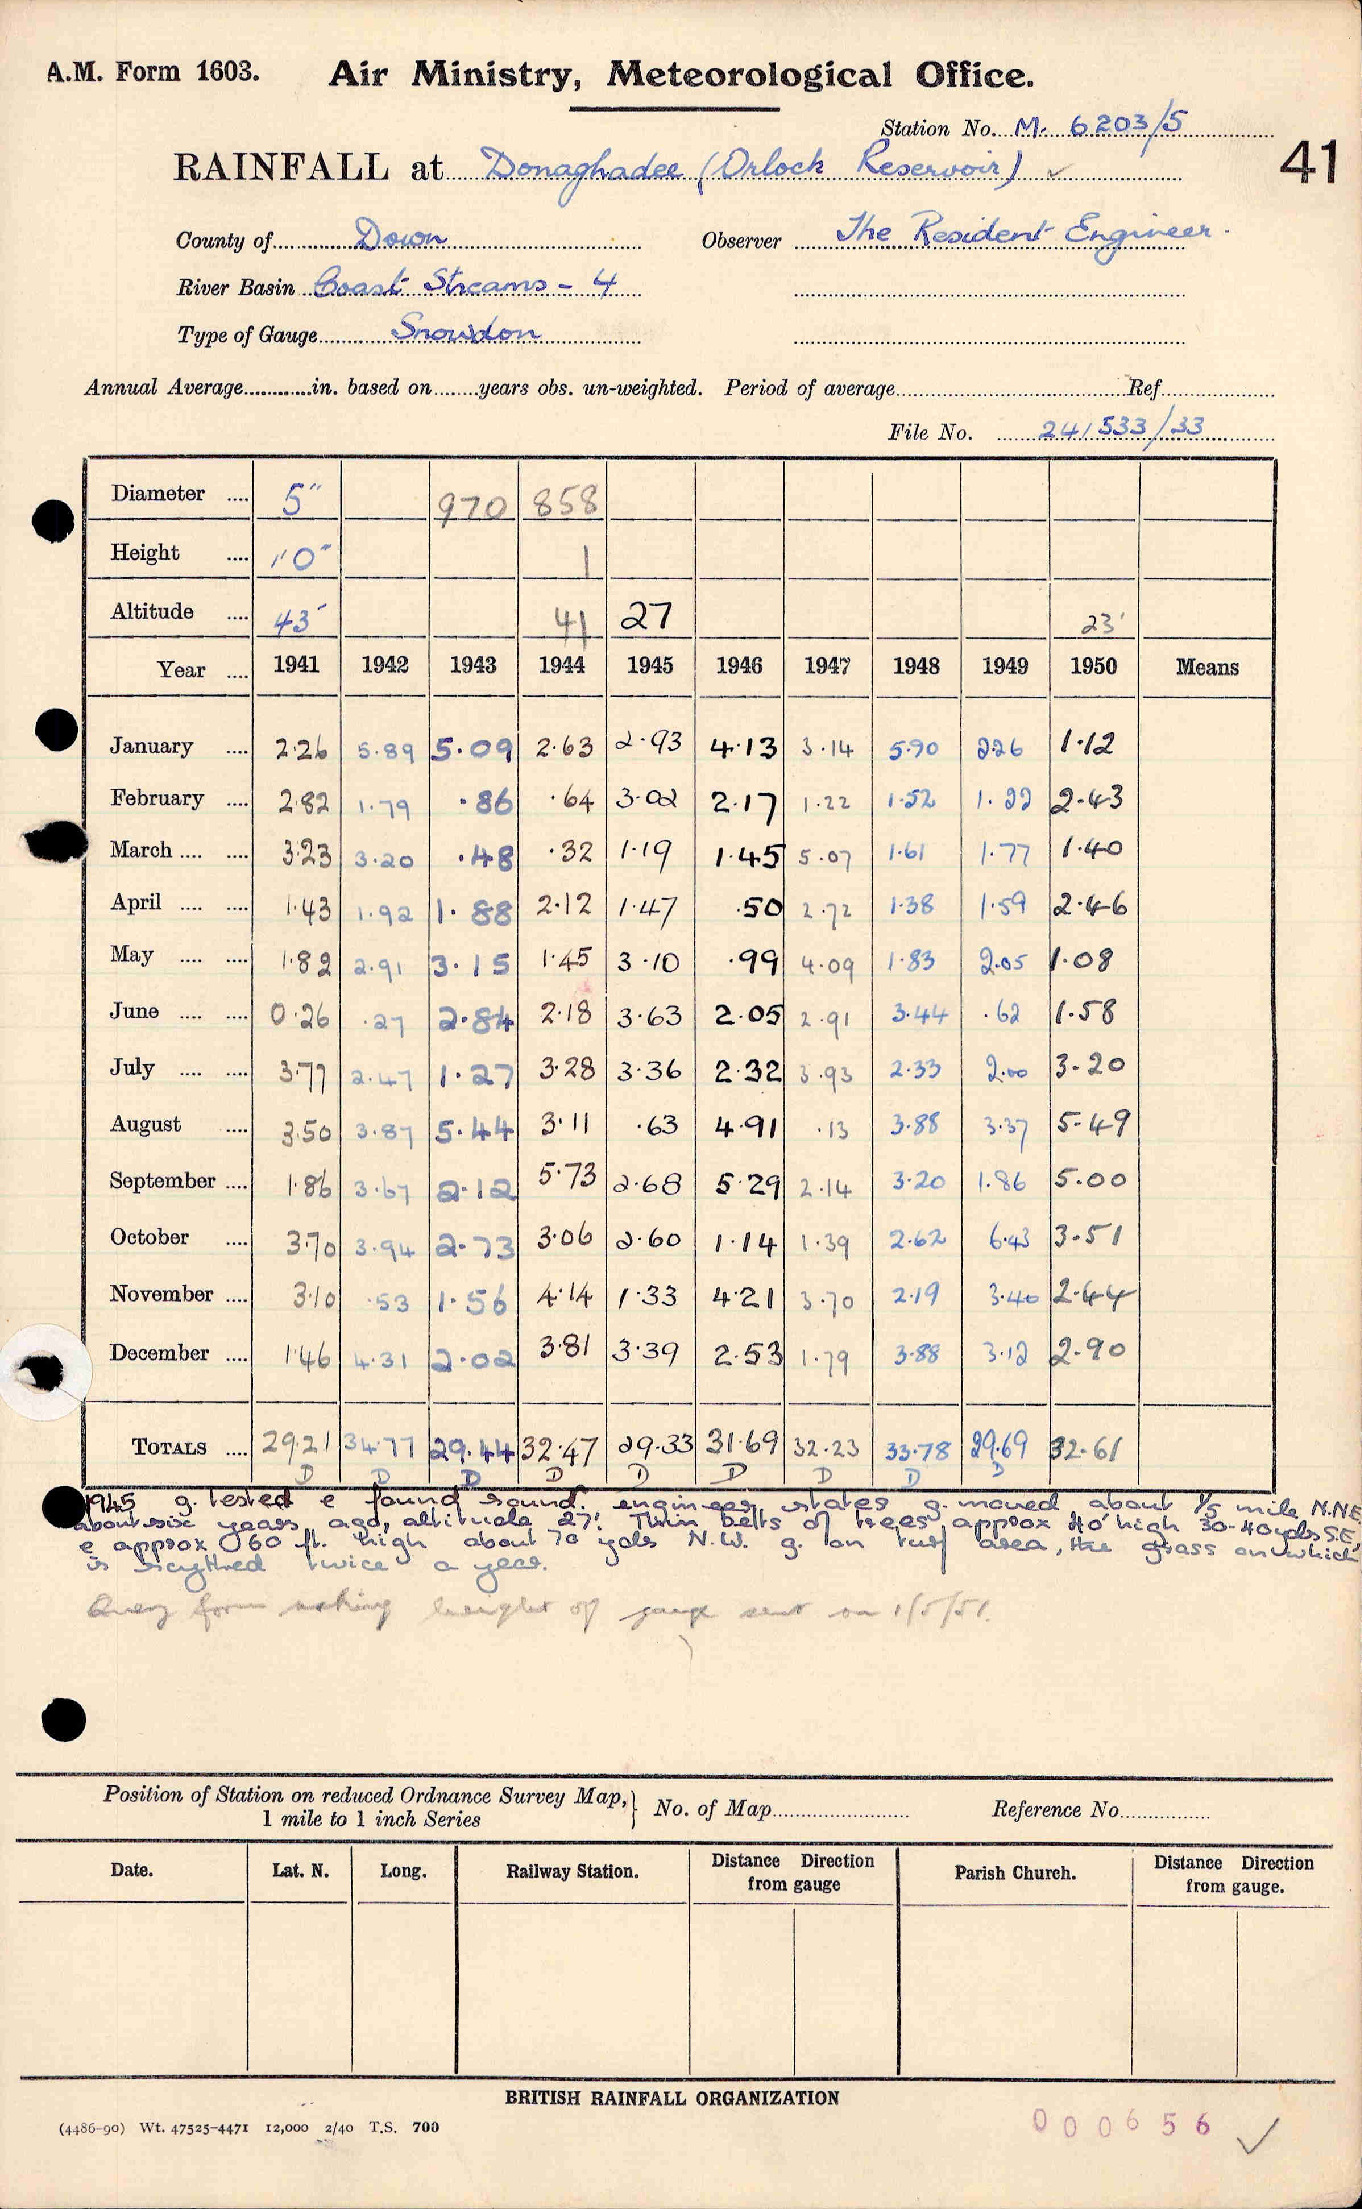 A.M. Form 1603. Air Ministry, Meteorological Office.
Station No. M. 6203/5
41
RAINFALL at Donaghadee (Orlock Reservoir) ✓
County of Down Observer The Resident Engineer.
River Basin Coast Streams - 4
Type of Gauge Snowdon
Annual Average in. based on years obs. un-weighted. Period of average Ref
File No. 241533/33
Diameter 5" 970 858
Height 1'0" 1
Altitude 43' 41 27 23'
Year 1941 1942 1943 1944 1945 1946 1947 1948 1949 1950 Means
January 2.26 5.89 5.09 2.63 2.93 4.13 3.14 5.90 2.26 1.12
February 2.82 1.79 .86 .64 3.02 2.17 1.22 1.52 1.22 2.43
March 3.23 3.20 .48 .32 1.19 1.45 5.07 1.61 1.77 1.40
April 1.43 1.92 1.88 2.12 1.47 .50 2.72 1.38 1.59 2.46
May 1.82 2.91 3.15 1.45 3.10 .99 4.09 1.83 2.05 1.08
June 0.26 .27 2.84 2.18 3.63 2.05 2.91 3.44 .62 1.58
July 3.77 2.47 1.27 3.28 3.36 2.32 3.93 2.33 2.00 3.20
August 3.50 3.87 5.44 3.11 .63 4.91 .13 3.88 3.37 5.49
September 1.86 3.67 2.12 5.73 2.68 5.29 2.14 3.20 1.86 5.00
October 3.70 3.94 2.73 3.06 2.60 1.14 1.39 2.62 6.43 3.51
November 3.10 .53 1.56 4.14 1.33 4.21 3.70 2.19 3.40 2.44
December 1.46 4.31 2.02 3.81 3.39 2.53 1.79 3.88 3.12 2.90
TOTALS 29.21 34.77 29.44 32.47 29.33 31.69 32.23 33.78 29.69 32.61
D D D D D D D D D
1945 g. tested e found sound. engineer states g. moved about 1/5 mile N.NE
about six years ago, altitude 27'. Thin belts of trees approx 40' high 30-40 yds S.E,
e approx 60 ft. high about 70 yds N.W. g. on turf area, the grass on which
is scythed twice a year.
Query form asking height of gauge sent on 1/5/51.
Position of Station on reduced Ordnance Survey Map, } No. of Map Reference No.
1 mile to 1 inch Series
Date. Lat. N. Long. Railway Station. Distance Direction from gauge Parish Church. Distance Direction from gauge.
BRITISH RAINFALL ORGANIZATION
(4486-90) Wt. 47525-4471 12,000 2/40 T.S. 700
000656 ✓